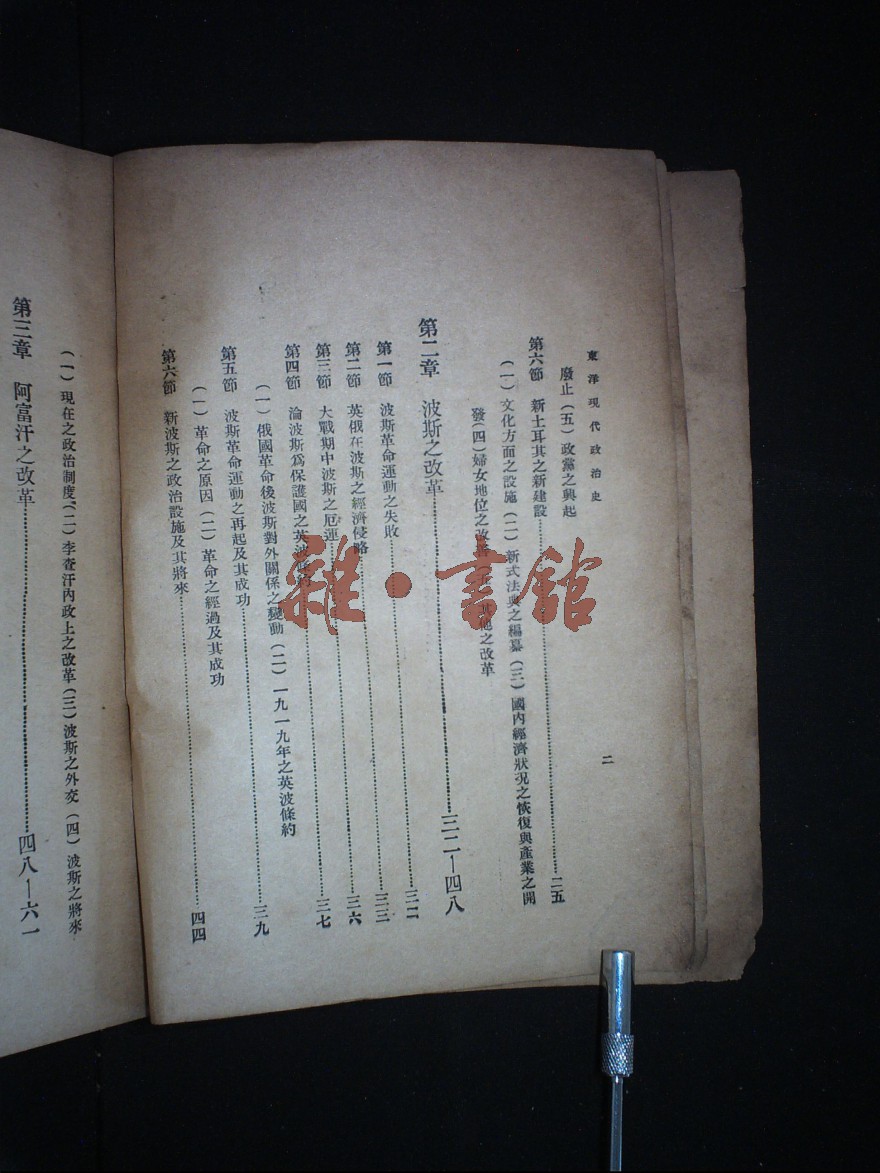 東洋現代政治史
二
廢止（五）政黨之興起
第六節　新土耳其之新建設……二五
（一）文化方面之設施（二）新式法典之編纂（三）國內經濟狀況之恢復與產業之開
發（四）婦女地位之改善（五）其他之改革
第二章　波斯之改革……三二—四八
第一節　波斯革命運動之失敗……三二
第二節　英俄在波斯之經濟侵略……三三
第三節　大戰期中波斯之厄運……三六
第四節　論波斯爲保護國之英波條約……三七
（一）俄國革命後波斯對外關係之變動（二）一九一九年之英波條約
第五節　波斯革命運動之再起及其成功……三九
（一）革命之原因（二）革命之經過及其成功
第六節　新波斯之政治設施及其將來……四四
（一）現在之政治制度（二）李查汗內政上之改革（三）波斯之外交（四）波斯之將來
第三章　阿富汗之改革……四八—六一
雜·書館